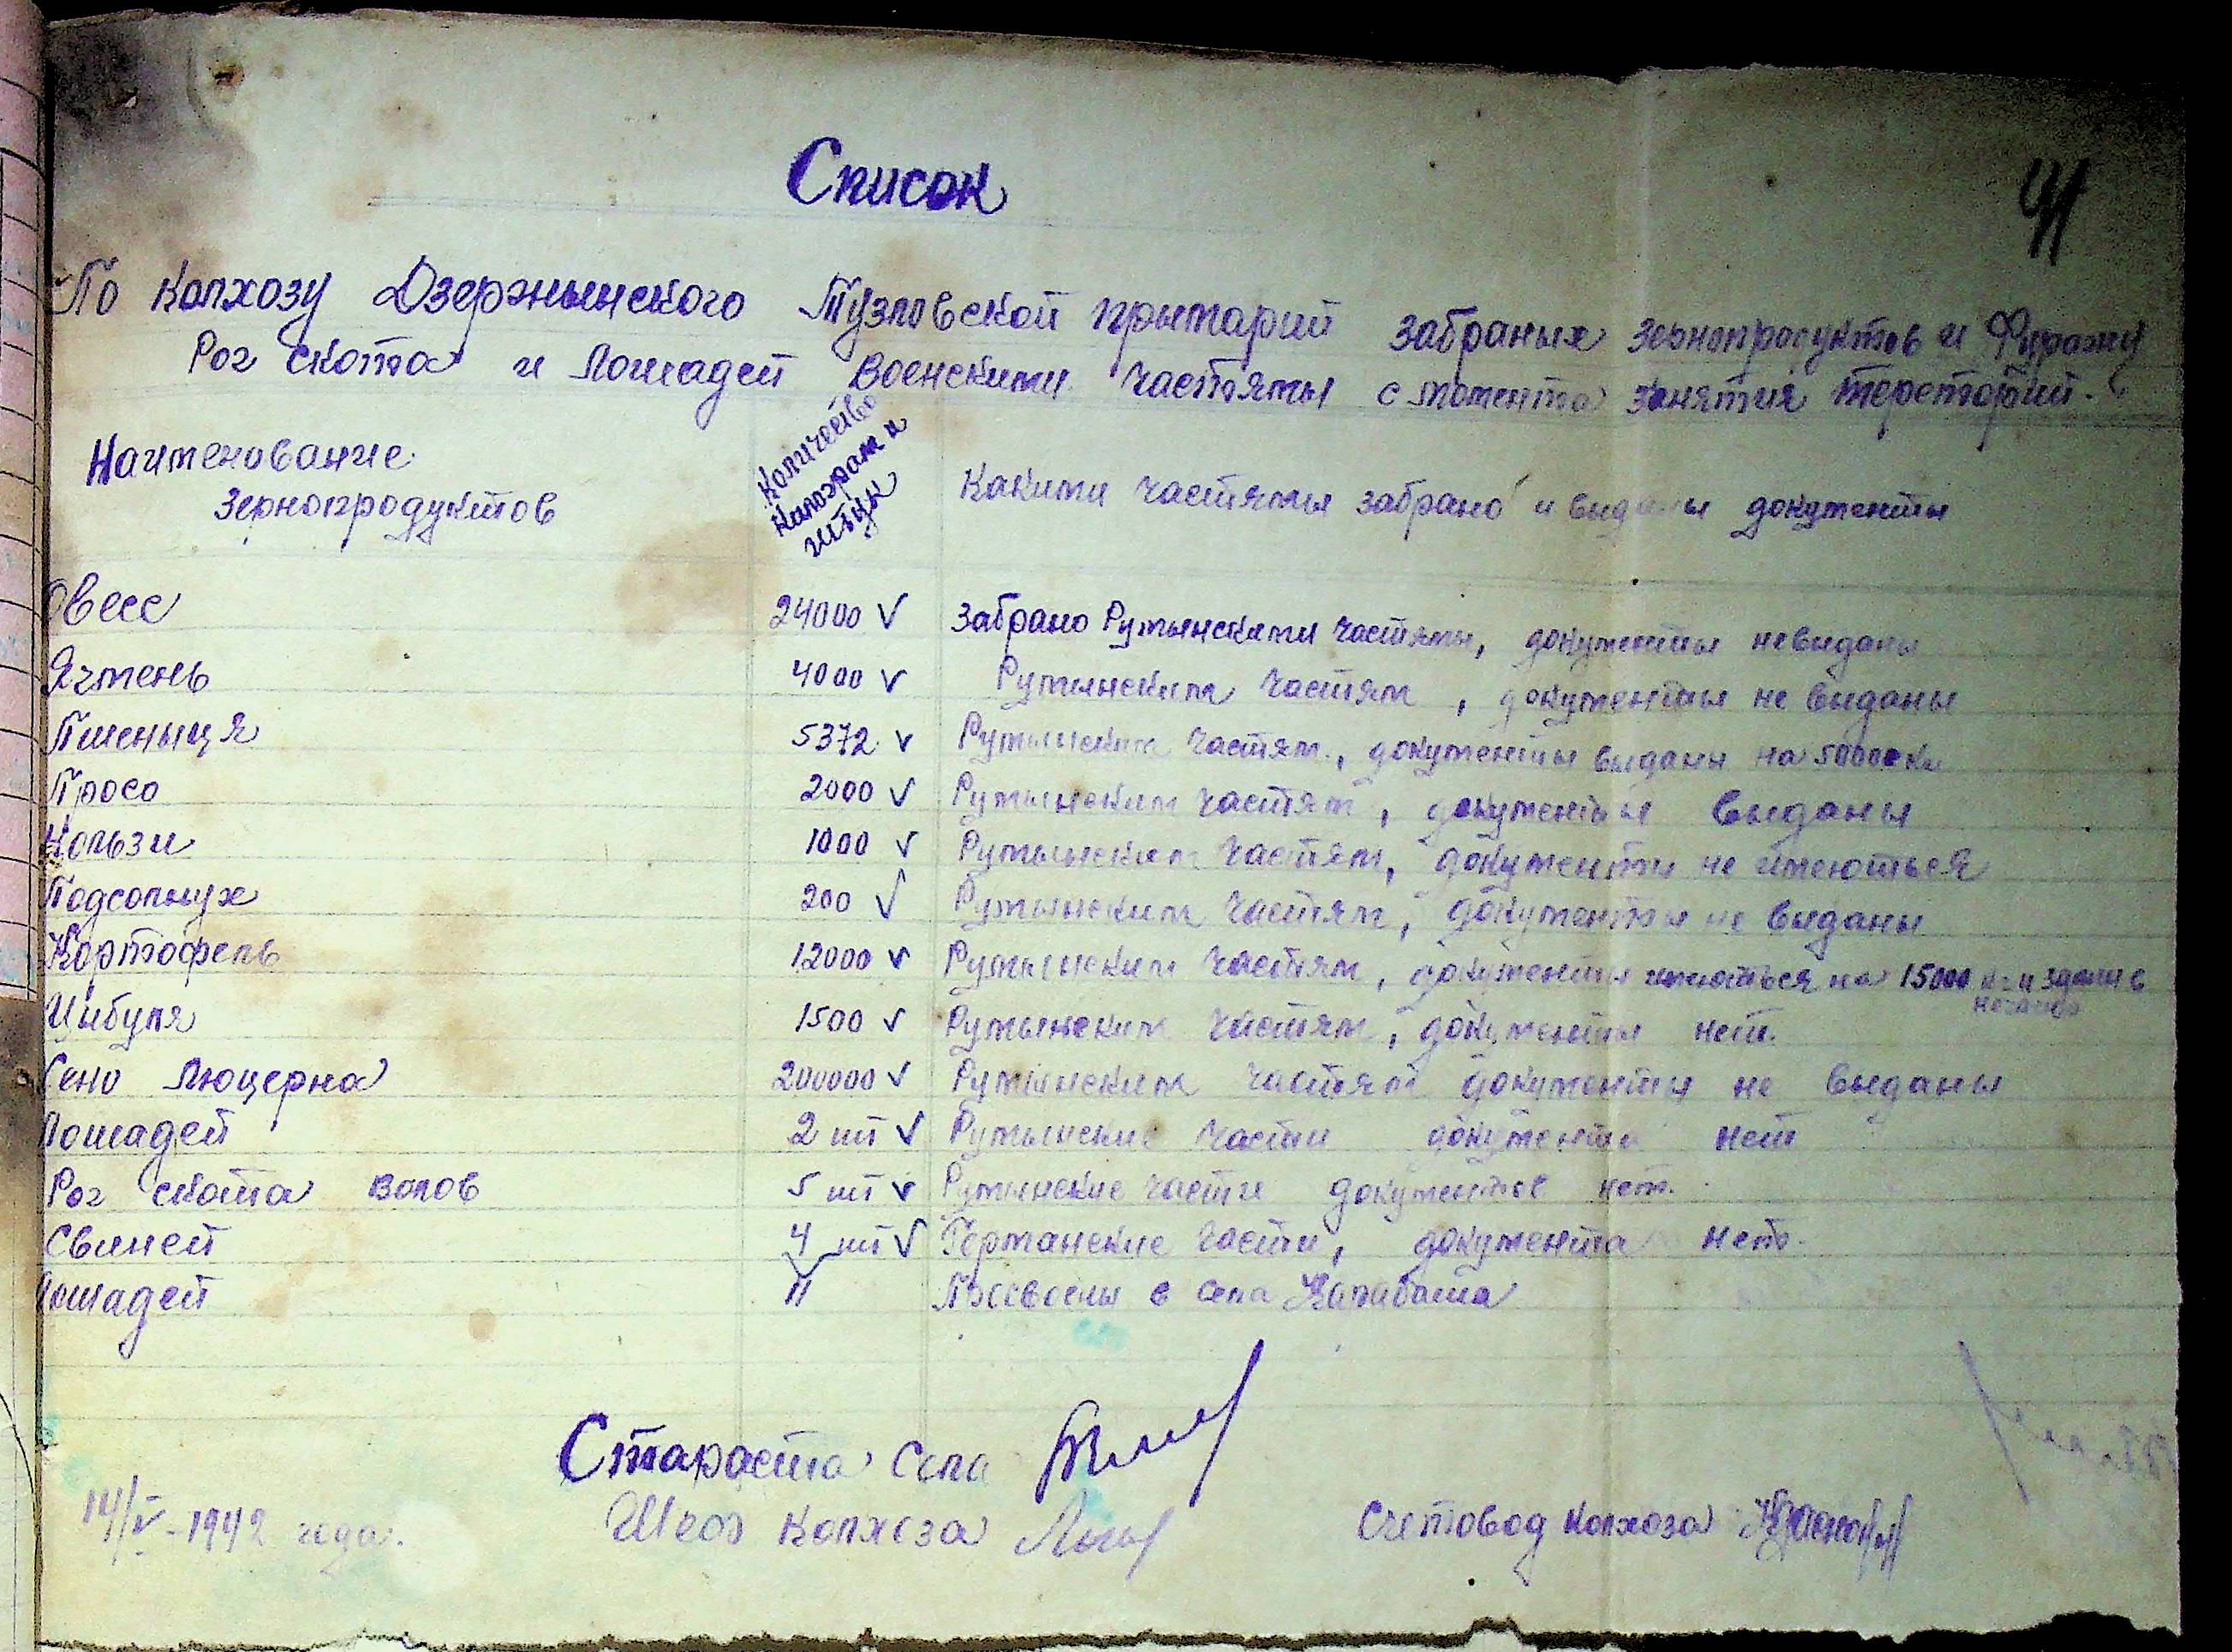 Список
41
По колхозу Дзержынского Тузловской прымарий забраных зернопродуктов и Фуражу
Рог скота и лошадей Военскими частямы с момента занятия тереторий.
Наименование
Зернопродуктов
Количество
Килограм и
штук
Какими частямы забрано и выданы документы
Овесс 24000 v Забрано Румынскими частямы, документы невыданы
Ячмень 4000 v Румынским частям, документы не выданы
Пшеныця 5372 v Румынским частям, документы выданы на 5000 кг
Просо 2000 v Румынским частям, документы выданы
Кользи 1000 v Румынским частям, документы не имеються
Подсолнух 200 v Румынским частям, документы не выданы
Картофель 12000 v Румынским частям, документы имеються на 15000 кг и здани в
Цыбуля 1500 v Румынским частям, документы нет.
Сено Люцерна 200000 v Румынским частям документы не выданы
Лошадей 2 шт v Румынские части документы нет
Рог скота волов 5 шт v Румынские части документов нет.
Свиней 4 шт v Германские части, документа нет.
Лошадей 11 в села Карабаша
Стараста Села
14/V-1942 года. Шеф колхоза
Счетовод колхоза